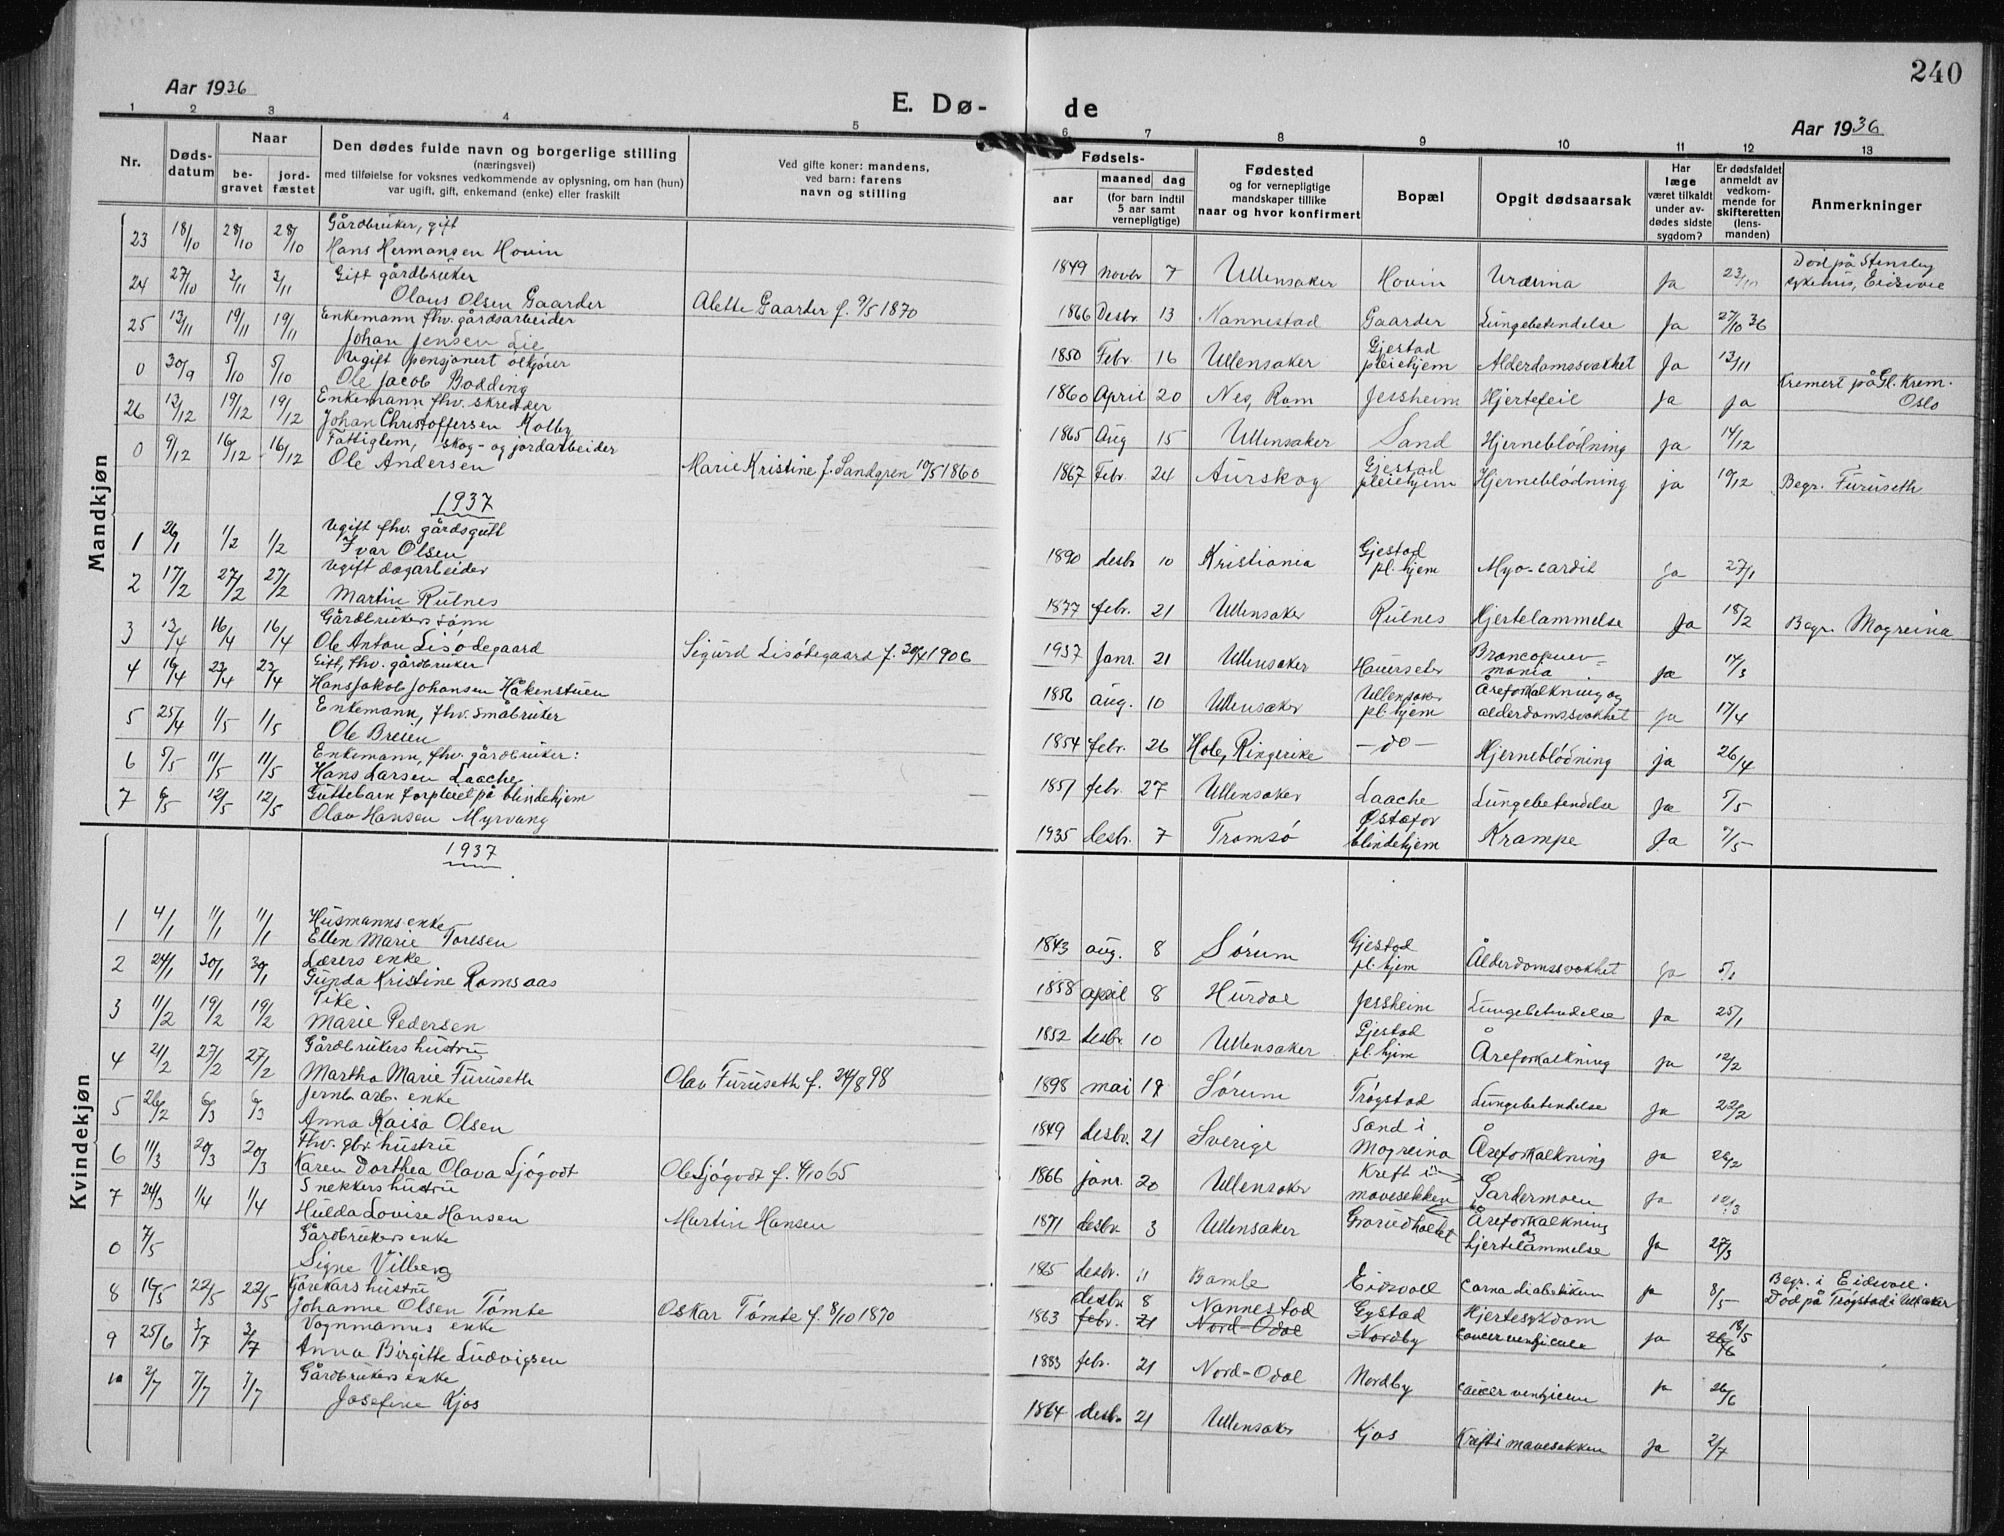 240
Aar 1936
E. Dø-
de
Aar 1936
1 2 3 4 5 6 7 8 9 10 11 12 13
Nr.
Døds-
datum
Naar
be-
gravet
jord-
fæstet
Den dødes fulde navn og borgerlige stilling
(næringsvei)
med tilføielse for voksnes vedkommende av oplysning, om han (hun)
var ugift, gift, enkemand (enke) eller fraskilt
Ved gifte koner: mandens,
ved barn: farens
navn og stilling
Fødsels-
aar
maaned dag
(for barn indtil
5 aar samt
vernepligtige)
Fødested
og for vernepligtige
mandskaper tillike
naar og hvor konfirmert
Bopæl
Opgit dødsaarsak
Har
læge
været tilkaldt
under av-
dødes sidste
sygdom?
Er dødsfaldet
anmeldt av
vedkom-
mende for
skifteretten
(lens-
manden)
Anmerkninger
Mandkjøn
23 18/10 28/10 28/10 Gårdbruker, gift
Hans Hermansen Hovin
1849 novbr 7 Ullensaker Hovin Uræmia Ja Död på Stensby
sykehus, Eidsvoll
24 27/10 3/11 3/11 Gift gårdbruker
Olaus Olsen Gaarder Alette Gaarder f. 9/5 1870
1866 Desbr. 13 Nannestad Gaarder Lungebetendelse Ja 27/10 36
25 13/11 19/11 19/11 Enkemann fhv. gårdsarbeider
Johan Jensen Lie
1850 Febr. 16 Ullensaker Gjestad
pleiehjem Alderdomssvakhet Ja 13/11
0 30/9 5/10 5/10 Ugift pensjonert ølkjører
Ole Jacob Bodding
1860 April 20 Nes, Rom Jessheim Hjertefeil Ja ja Kremert på Gl. Krem.
Oslo
26 13/12 19/12 19/12 Enkemann fhv. skredder
Johan Christoffersen Molby
1865 Aug 15 Ullensaker Sand Hjerneblödning ja 14/12
0 9/12 16/12 16/12 Fattiglem, skog- og jordarbeider
Ole Andersen Marie Kristine f. Sandgren 10/5 1860
1867 Febr. 24 Aurskog Gjestad
pleiehjem Hjerneblödning ja 10/12 Begr. Furuseth
1937
1 26/1 1/2 1/2 Ugift fhv. gårdsgutt
Ivar Olsen
1890 desbr 10 Kristiania Gjestad
pl. hjem Myo-cardit ja 27/1
2 17/2 27/2 27/2 Ugift dagarbeider
Martin Rulnes
1877 febr. 21 Ullensaker Rulnes Hjertelammelse Ja 18/2 Begr. Mogreina
3 13/4 16/4 16/4 Gårdbrukers sønn
Ole Anton Lisödegaard Sigurd Lisödegaard f. 20/4 1906
1937 Janr. 21 Ullensaker Hauerseter Broncopnev-
monia ja 14/3
4 16/4 23/4 23/4 Gift, fhv. gårdbruker
Hans Jakob Johansen Håkenstuen
1856 aug. 10 Ullensaker Ullensaker
pl. hjem Åreforkalkning og
alderdomssvakhet ja 17/4
5 25/4 1/5 1/5 Enkemann, fhv. småbruker
Ole Breien
1854 febr. 26 Hole, Ringerike – do – Hjerneblödning ja 26/4
6 5/5 11/5 11/5 Enkemann, fhv. gårdbruker:
Hans Larsen Laache
1851 febr. 27 Ullensaker Laache Lungebetendelse Ja 5/5
7 6/5 12/5 12/5 Guttebarn forpleiet på blindehjem
Olav Hansen Myrvang
1935 desbr. 7 Tromsö Østafor
blindehjem Krampe Ja 7/5
Kvindekjøn
1937
1 4/1 11/1 11/1 Husmanns enke
Ellen Marie Toresen
1843 aug. 8 Sörum Gjestad
pl. hjem Ålderdomssvakhet ja 5/1
2 24/1 30/1 30/1 Lærers enke
Gunda Kristine Ramsaas
1858 april 8 Hurdal Jessheim Lungebetendelse Ja 25/1
3 11/2 19/2 19/2 Pike.
Marie Pedersen
1852 desbr. 10 Ullensaker Gjestad
pl. hjem Åreforkalkning ja 12/2
4 21/2 27/2 27/2 Gårdbrukers hustru
Martha Marie Furuseth Olav Furuseth f. 24/8 98
1898 mai 17 Sörum Trögstad Lungebetendelse Ja 22/2
5 26/2 6/3 6/3 Jernb. arb. enke
Anna Kaisa Olsen
1849 desbr. 21 Sverige Sand i
Mogreina Åreforkalkning Ja 26/2
6 11/3 20/3 20/3 Fhv. gbr. hustru
Karen Dorthea Olava Ljögodt Ole Ljögodt f. 4/10 65
1866 janr. 20 Ullensaker Kreft i
mavesekken Gardermoen Ja
7 24/3 1/4 1/4 Snekkers hustru
Hulda Lovise Hansen Martin Hansen
1871 desbr. 3 Ullensaker Åreforkalkning
og
hjertelammelse Ja 27/3
0 7/5 Gårdbrukers enke
Signe Vilberg
1865 desbr. 11 Bamle Eidsvoll ja 8/5 Begr. i Eidsvoll.
Död på Trögstad i Ullsaker
8 16/5 22/5 22/5 Kjørekars hustru
Johanne Olsen Tömte Oskar Tömte f. 8/10 1870
1863 desbr. 8 Nannestad Gystad Hjertesykdom 18/5
febr. 21 Nord-Odal Nordby cancer ventricule ja 26/6
9 25/6 3/7 3/7 Vognmanns enke
Anna Birgitte Ludvigsen
1883 febr. 21 Nord-Odal Nordby cancer ja 26/6
10 2/7 7/7 7/7 Gårdbrukers enke
Josefine Kjos
1864 desbr. 21 Ullensaker Kjos Kreft i mavesekken Ja 2/7